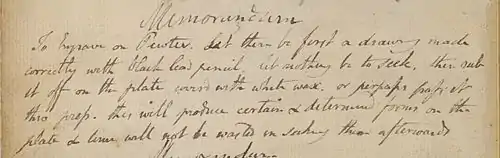 Memorandum
To Engrave on Pewter. Let there be first a drawing made
correctly with black lead pencil, let nothing be to seek, then rub
it off on the plate coverd with white wax. or perhaps pass it
thro press. this will produce certain & determind forms on the
plate & time will not be wasted in seeking them afterwards